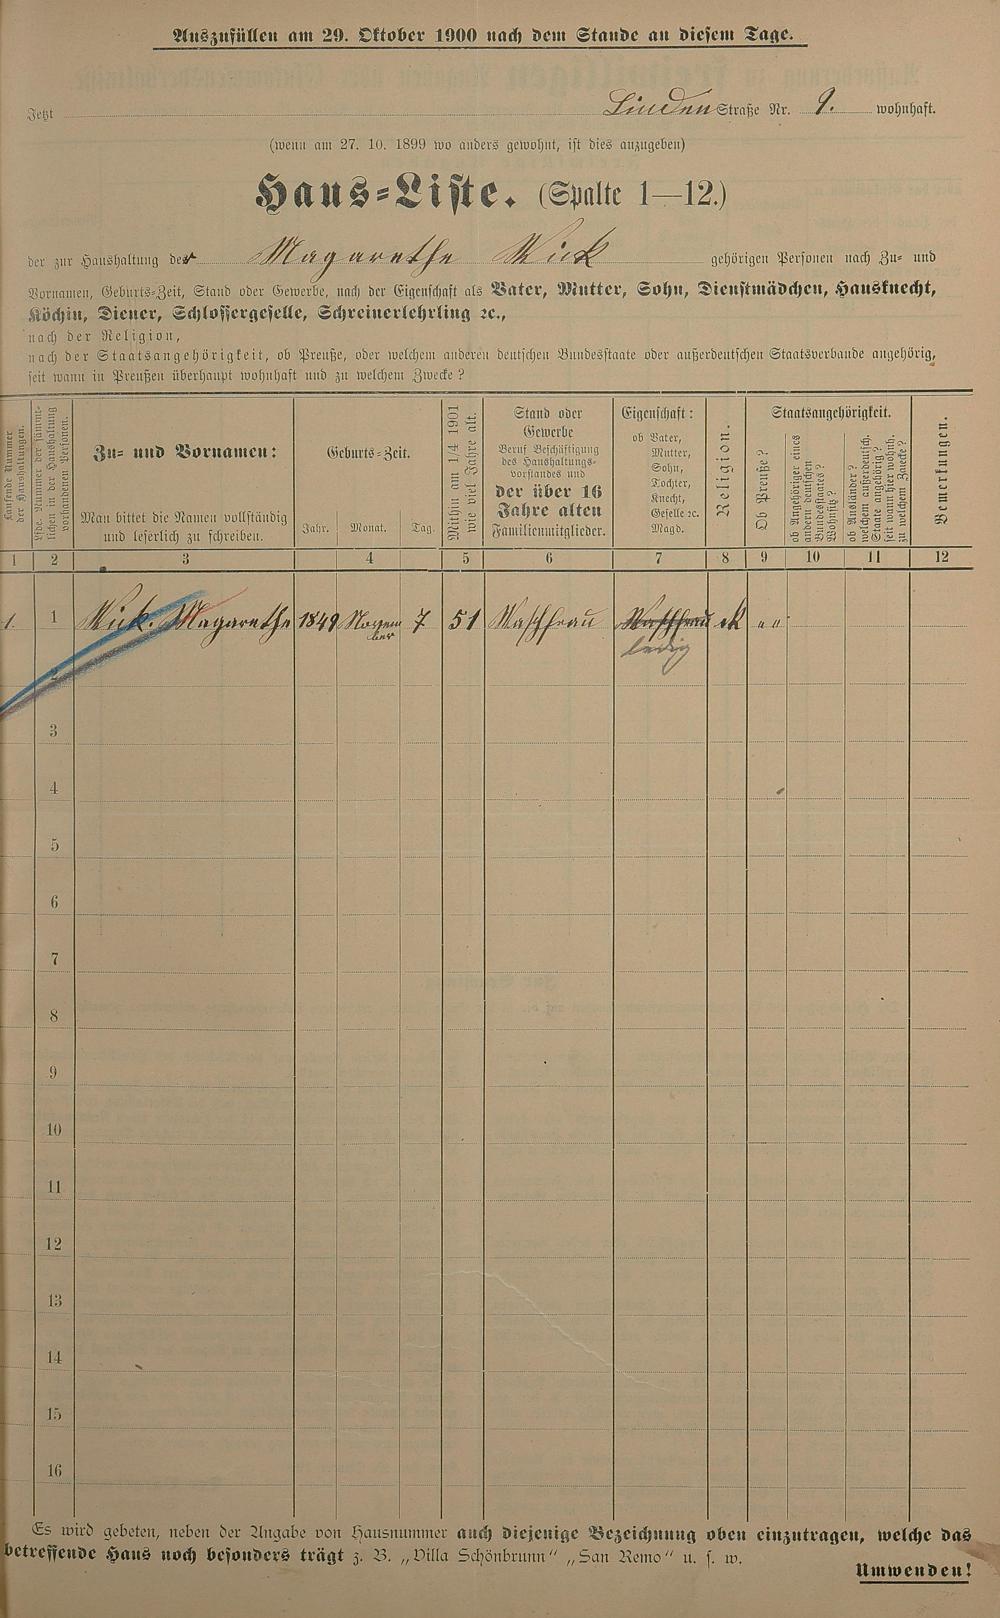 Auszufüllen am 29. Oktober 1900 nach dem Stande an diesem Tage.
Jetzt Linden Straße Nr. 9. wohnhaft.
(wenn am 27. 10. 1899 wo anders gewohnt, ist dies anzugeben)
Haus-Liste. (Spalte 1—12.)
der zur Haushaltung der Magarethe Wick gehörigen Personen nach Zu- und
Vornamen, Geburts-Zeit, Stand oder Gewerbe, nach der Eigenschaft als Vater, Mutter, Sohn, Dienstmädchen, Hausknecht,
Köchin, Diener, Schlossergeselle, Schreinerlehrling ꝛc.,
nach der Religion,
nach der Staatsangehörigkeit, ob Preuße, oder welchem anderen deutschen Bundesstaate oder außerdeutschen Staatsverbande angehörig,
seit wann in Preußen überhaupt wohnhaft und zu welchem Zwecke?
Laufende Nummer
der Haushaltungen.
Lfde. Nummer der sämmt-
lichen in der Haushaltung
vorhandenen Personen.
Zu- und Vornamen:
Man bittet die Namen vollständig
und leserlich zu schreiben.
Geburts-Zeit.
Jahr. Monat. Tag.
Mithin am 1/4 1901
wie viel Jahre alt.
Stand oder
Gewerbe
Beruf Beschäftigung
des Haushaltungs-
vorstandes und
der über 16
Jahre alten
Familienmitglieder.
Eigenschaft:
ob Vater,
Mutter,
Sohn,
Tochter,
Knecht,
Geselle ꝛc.
Magd.
Religion.
Staatsangehörigkeit.
Ob Preuße?
ob Angehöriger eines
andern deutschen
Bundesstaates?
Wohnsitz?
ob Ausländer?
welchem außerdeutsch.
Staate angehörig?
seit wann hier wohnh.
zu welchem Zwecke?
Bemerkungen.
1 2 3 4 5 6 7 8 9 10 11 12
1. 1 Wick. Magarethe 1849 Novem 7 51 Waschfrau Waschfrau " "
ber ledig
2
3
4
5
6
7
8
9
10
11
12
13
14
15
16
Es wird gebeten, neben der Angabe von Hausnummer auch diejenige Bezeichnung oben einzutragen, welche das
betreffende Haus noch besonders trägt z. B. „Villa Schönbrunn“ „San Remo“ u. s. w.
Umwenden!